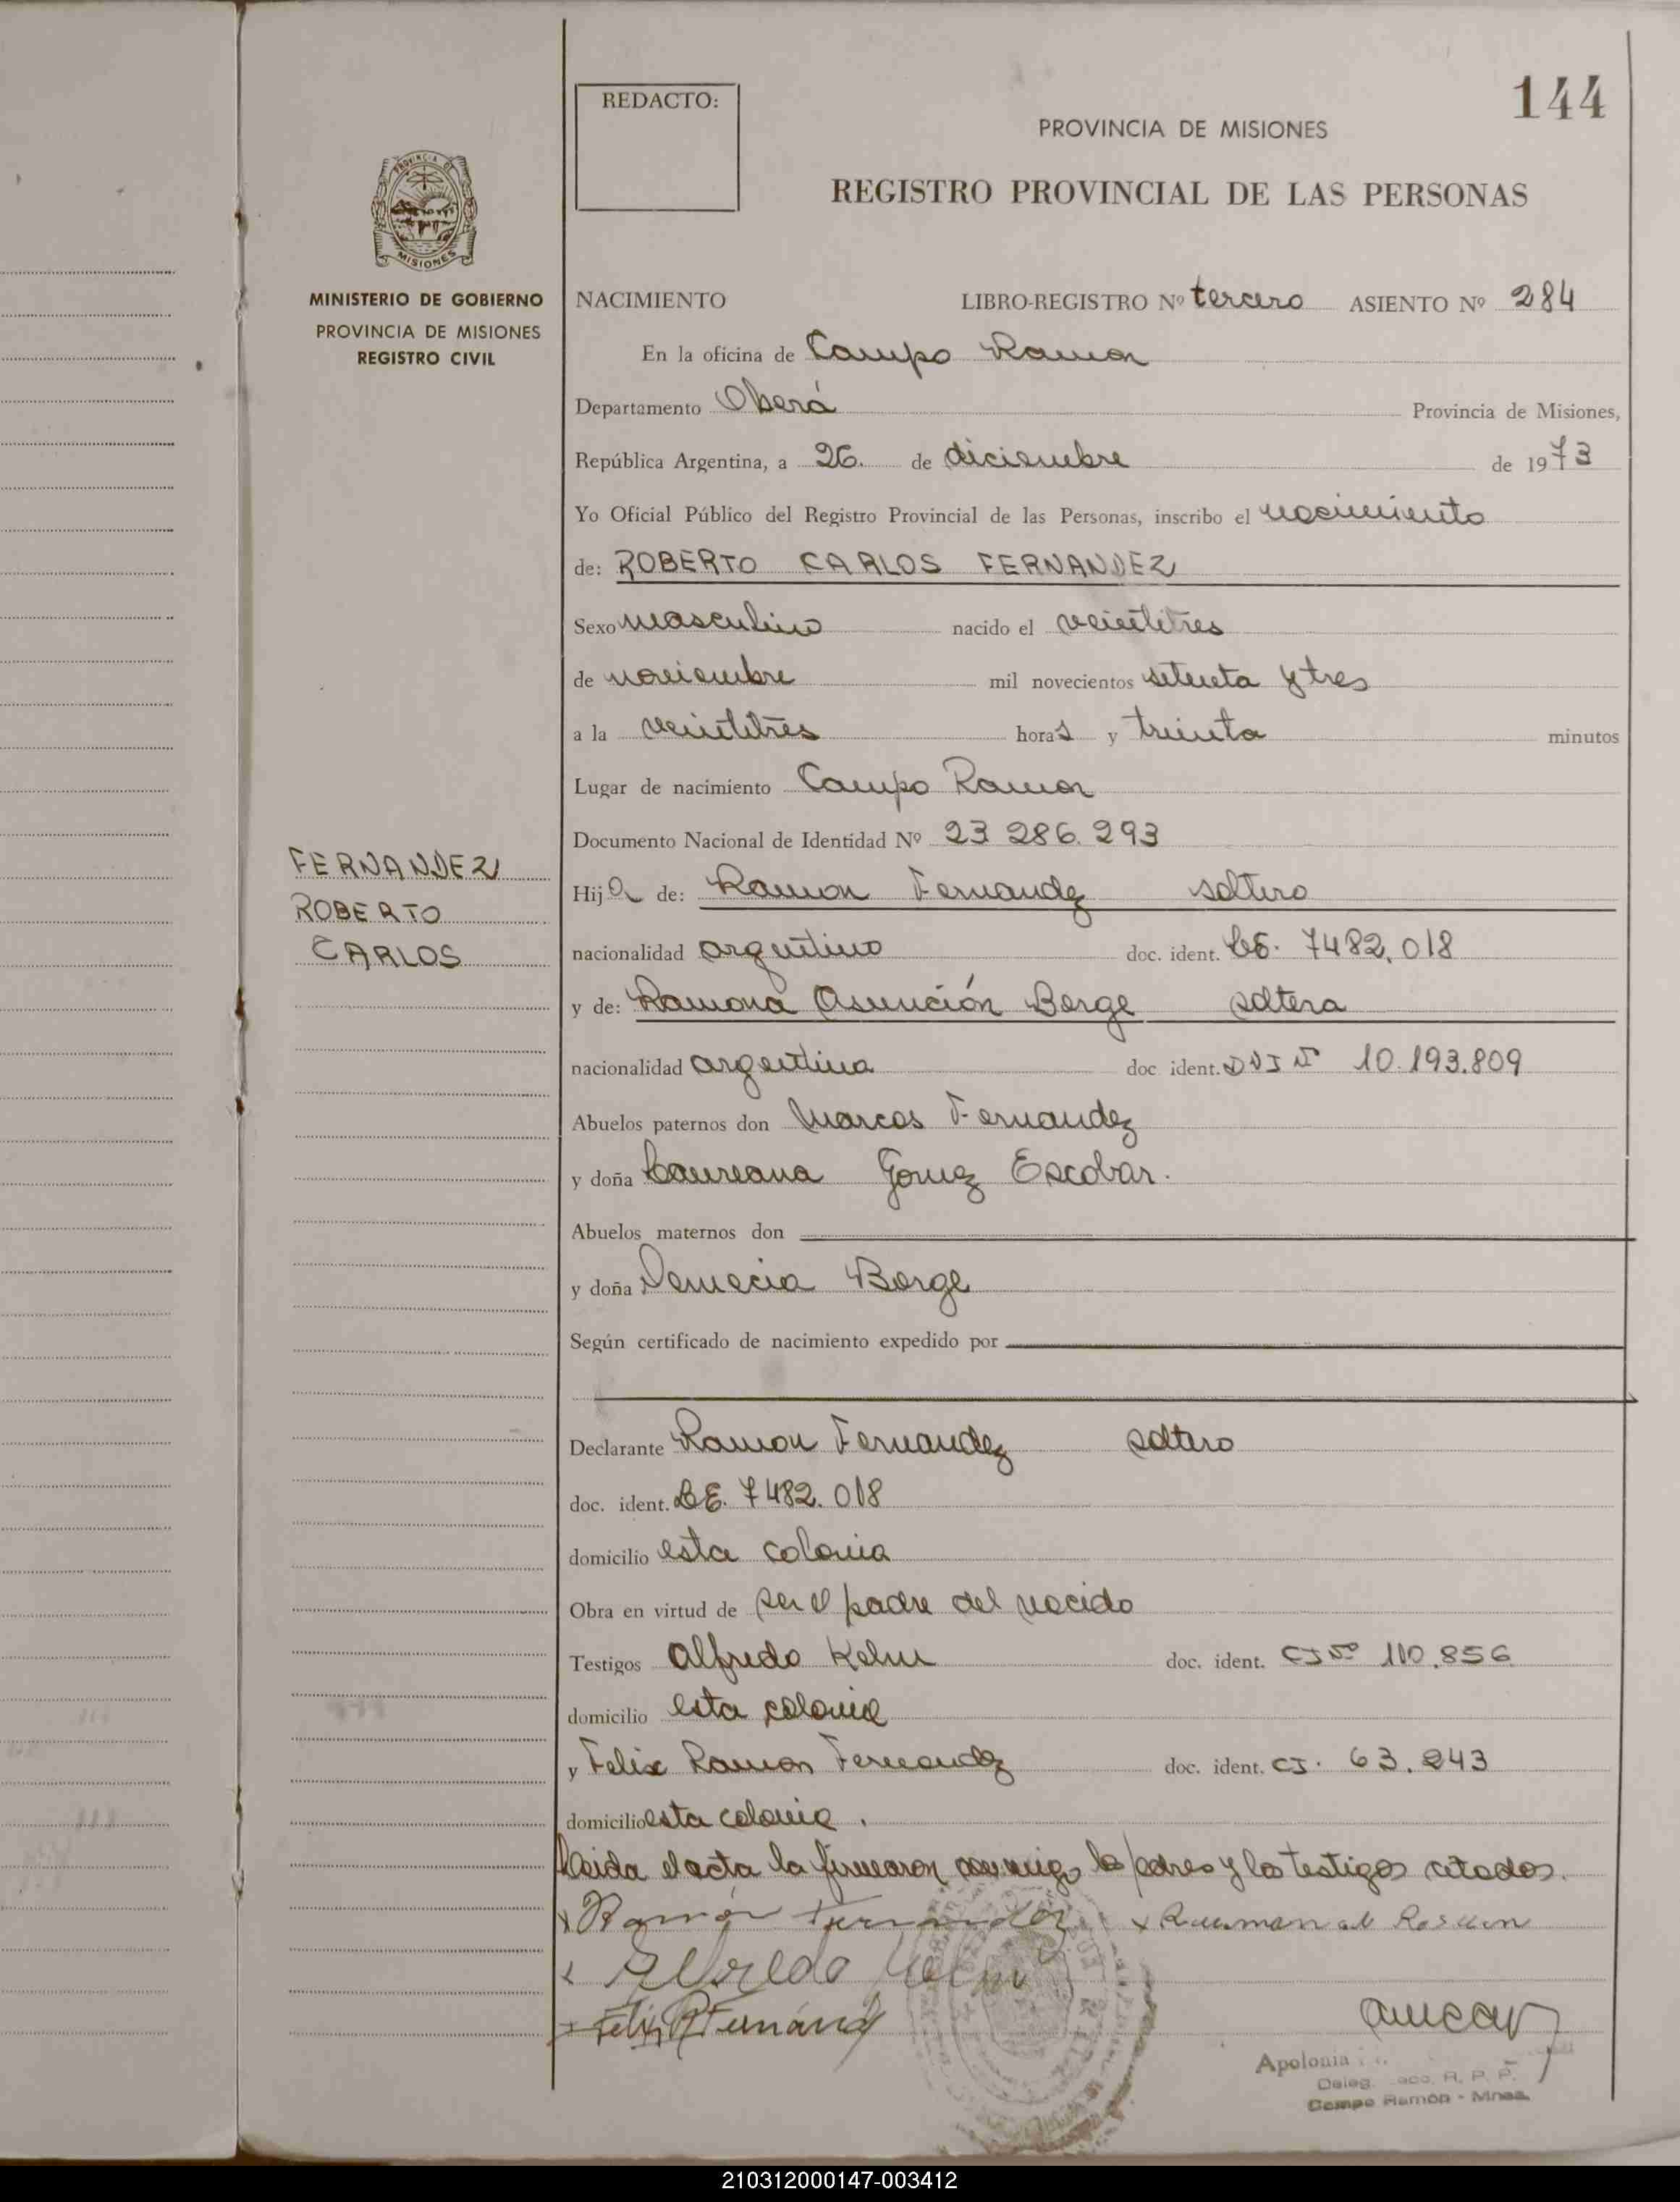 144
REDACTO:
PROVINCIA DE MISIONES
REGISTRO PROVINCIAL DE LAS PERSONAS
PROVINCIA DE
MISIONES
MINISTERIO DE GOBIERNO
PROVINCIA DE MISIONES
REGISTRO CIVIL
NACIMIENTO LIBRO-REGISTRO Nº tercero ASIENTO Nº 284
En la oficina de Campo Ramon
Departamento Oberá Provincia de Misiones,
República Argentina, a 26. de diciembre de 1973
Yo Oficial Público del Registro Provincial de las Personas, inscribo el nacimiento
de: ROBERTO CARLOS FERNANDEZ
Sexo masculino nacido el veintitres
de noviembre mil novecientos setenta y tres
a la veintitres horas y treinta minutos
Lugar de nacimiento Campo Ramon
Documento Nacional de Identidad Nº 23 286.293
FERNANDEZ
ROBERTO
CARLOS
Hijo de: Ramon Fernandez soltero
nacionalidad argentino doc. ident. LE. 7482.018
y de: Ramona Asunción Borge soltera
nacionalidad argentina doc ident. DNI Nº 10.193.809
Abuelos paternos don Marcos Fernandez
y doña Laureana Gomez Escobar.
Abuelos maternos don
y doña Demecia Borge
Según certificado de nacimiento expedido por
Declarante Ramon Fernandez soltero
doc. ident. LE. 7482.018
domicilio esta colonia
Obra en virtud de ser el padre del nacido
Testigos Alfredo Kelm doc. ident. CI Nº 110.856
domicilio esta colonia
y Felix Ramon Fernandez doc. ident. CI. 63.243
domicilio esta colonia.
Leida el acta la firmaron conmigo los padres y los testigos citados.
x Ramón Fernandez x
x Alfredo Kelm
x Felix R Fernández
Apolonia
Deleg. R. P. P.
Campo Ramón - Mnes.
210312000147-003412